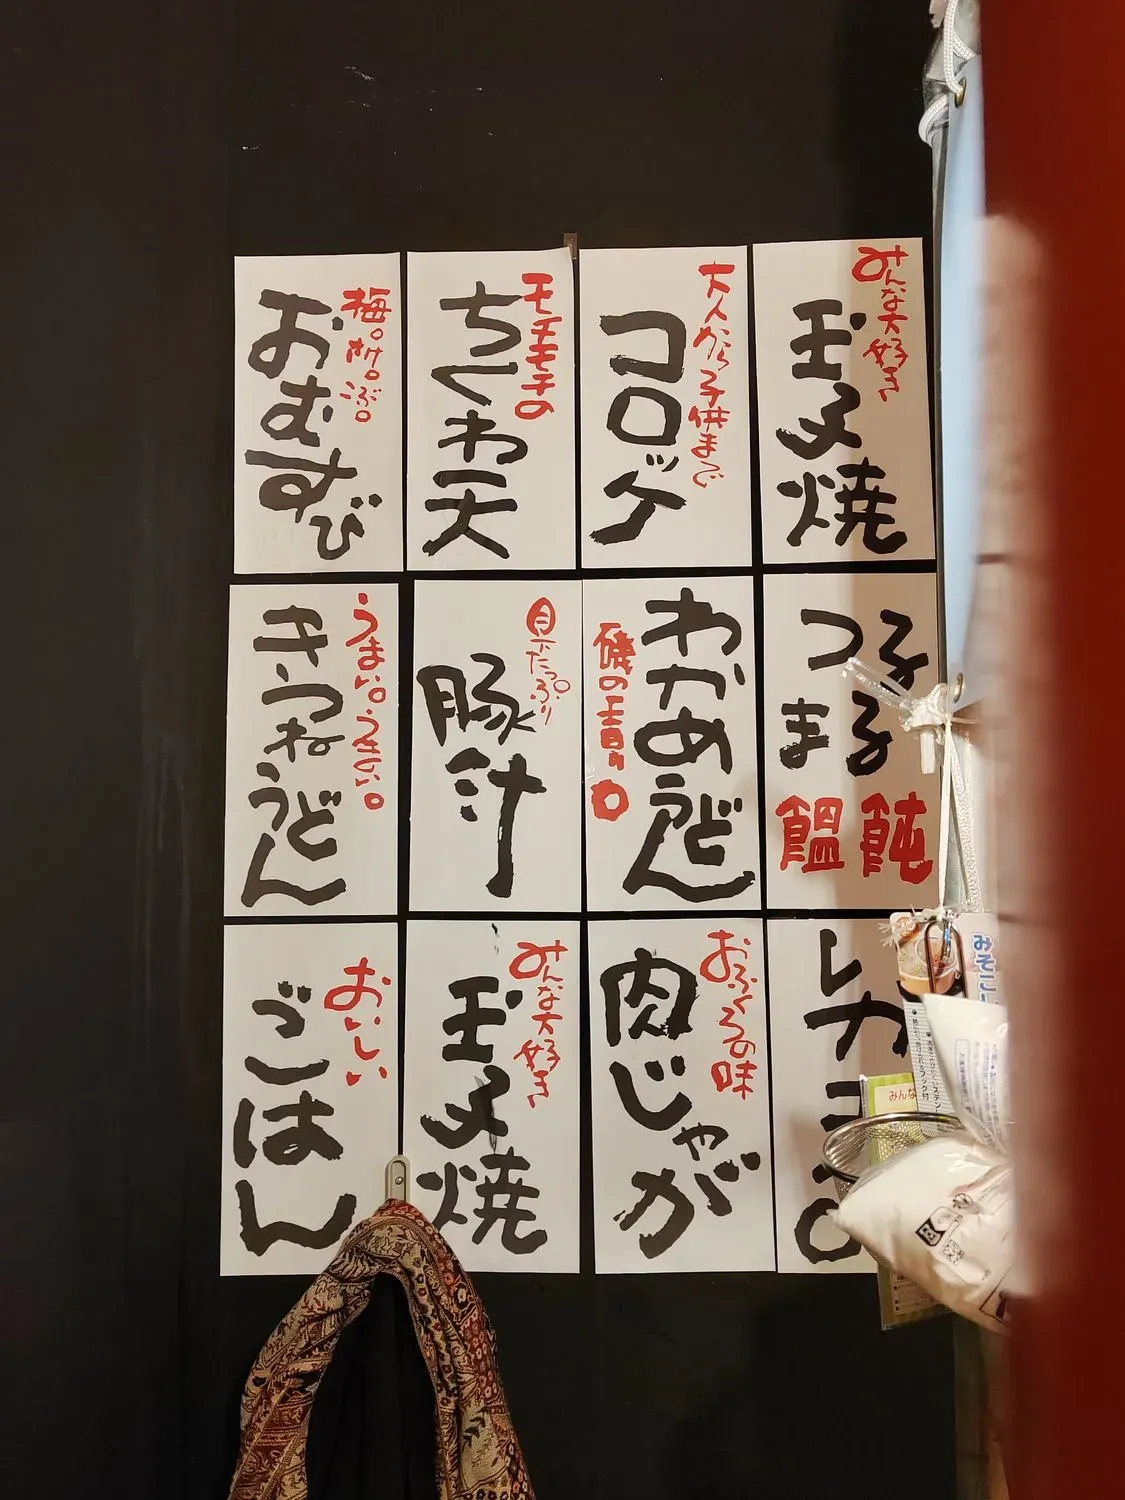 みんな大好き
玉子焼
大人から子供まで
コロッケ
モチモチの
ちくわ天
梅。鮭。こぶ。
おむすび
つるつる
饂飩
わかめうどん
磯の香り
具たっぷり
豚汁
うまい。うまい。
きつねうどん
おふくろの味
肉じゃが
みんな大好き
玉子焼
おいしい
ごはん
みそこし
みんな